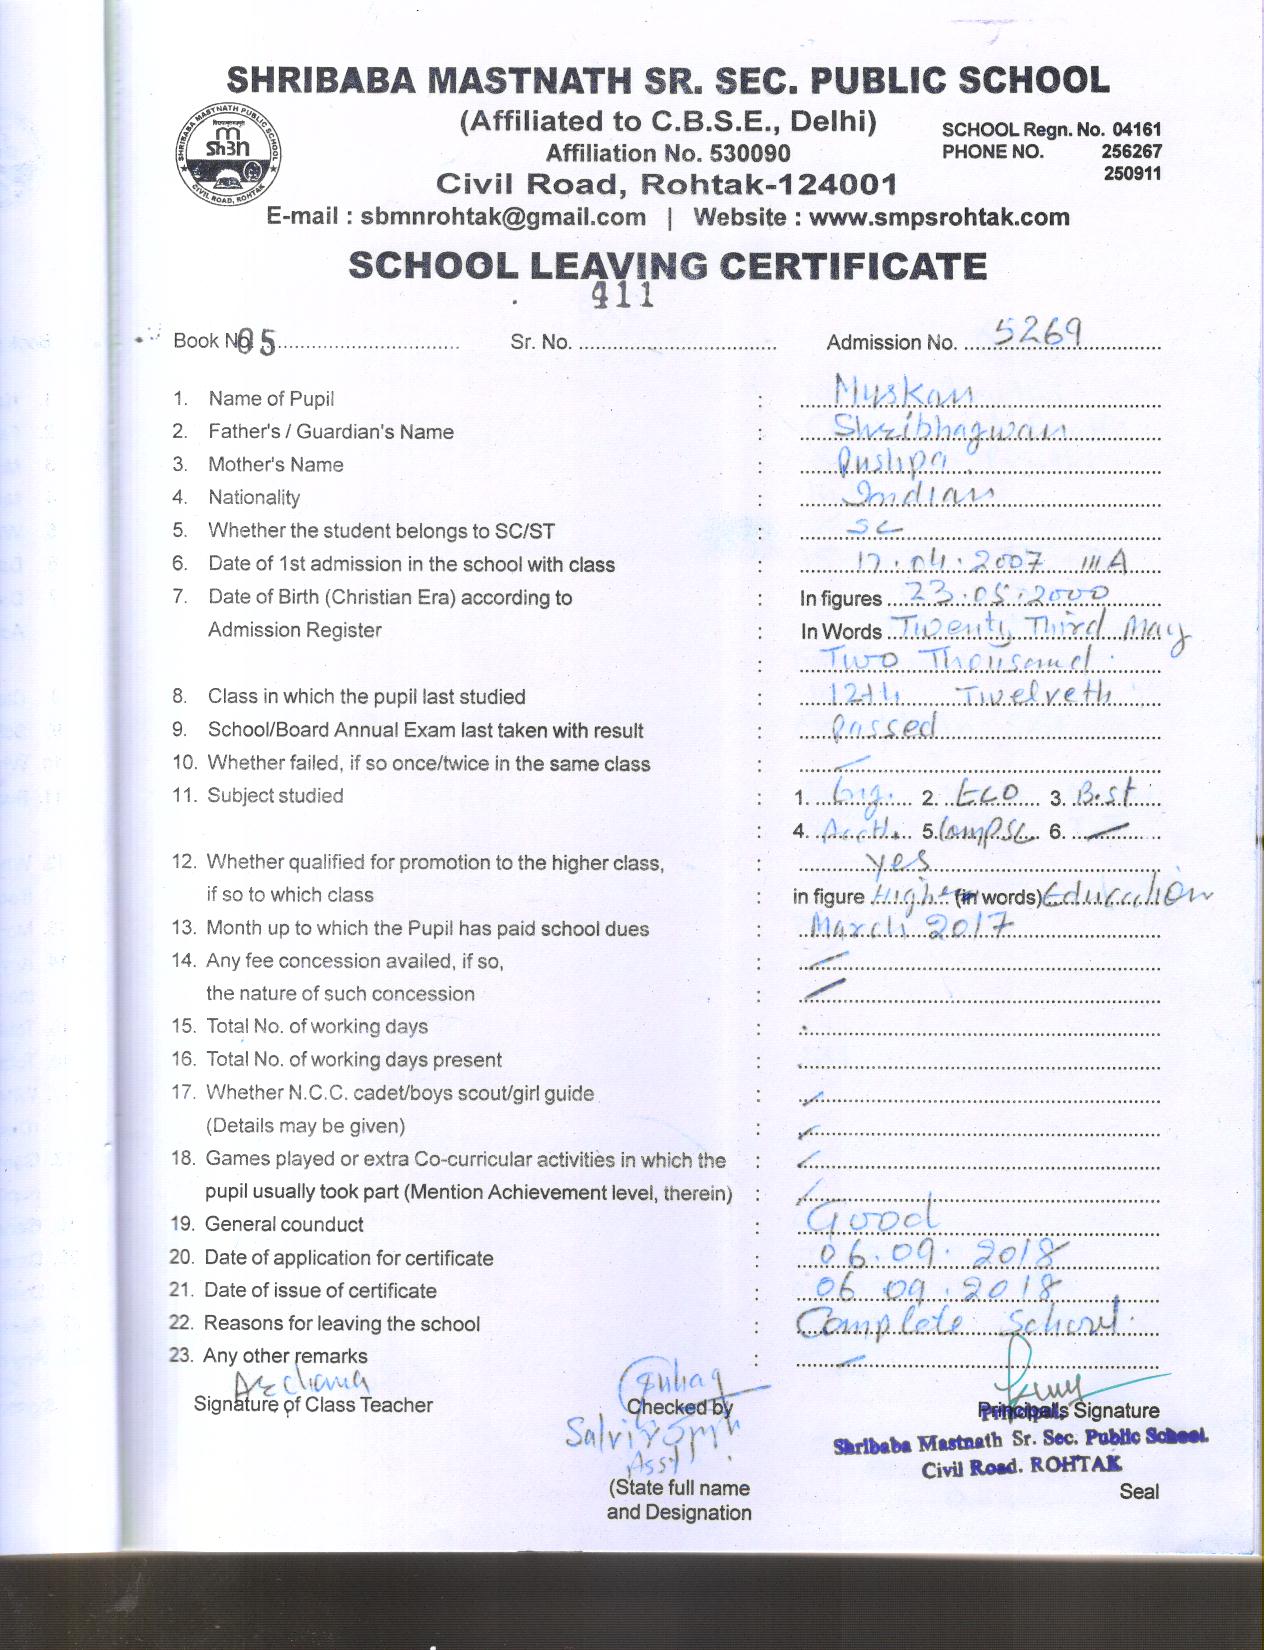 SHRIBABA MASTNATH SR. SEC. PUBLIC SCHOOL
(Affiliated to C.B.S.E., Delhi)
Affiliation No. 530090
SCHOOL Regn. No. 04161
PHONE NO. 256267
250911
SHRIBABA MASTNATH PUBLIC SCHOOL
CIVIL ROAD, ROHTAK
Civil Road, Rohtak-124001
E-mail : sbmnrohtak@gmail.com | Website : www.smpsrohtak.com
SCHOOL LEAVING CERTIFICATE
411
Book No. 05 Sr. No. Admission No. 5269
1. Name of Pupil : Muskan
2. Father's / Guardian's Name : Shribhagwan
3. Mother's Name : Pushpa
4. Nationality : Indian
5. Whether the student belongs to SC/ST : SC
6. Date of 1st admission in the school with class : 17.04.2007 III A
7. Date of Birth (Christian Era) according to : In figures 23.05.2000
Admission Register : In Words Twenty Third May
: Two Thousand
8. Class in which the pupil last studied : 12th Twelveth
9. School/Board Annual Exam last taken with result : Passed
10. Whether failed, if so once/twice in the same class : —
11. Subject studied : 1. Eng. 2. ECO 3. B.st
: 4. Acctt. 5. Comp Sc 6. —
12. Whether qualified for promotion to the higher class, : yes
if so to which class : in figure Higher (in words) Education
13. Month up to which the Pupil has paid school dues : March 2017
14. Any fee concession availed, if so, : —
the nature of such concession : —
15. Total No. of working days :
16. Total No. of working days present :
17. Whether N.C.C. cadet/boys scout/girl guide : —
(Details may be given) : —
18. Games played or extra Co-curricular activities in which the : —
pupil usually took part (Mention Achievement level, therein) : —
19. General counduct : Good
20. Date of application for certificate : 06.09.2018
21. Date of issue of certificate : 06.09.2018
22. Reasons for leaving the school : Complete School
23. Any other remarks : —
Archana
Signature of Class Teacher Checked by Principal's Signature
Asst
Shribaba Mastnath Sr. Sec. Public School
Civil Road. ROHTAK
(State full name Seal
and Designation